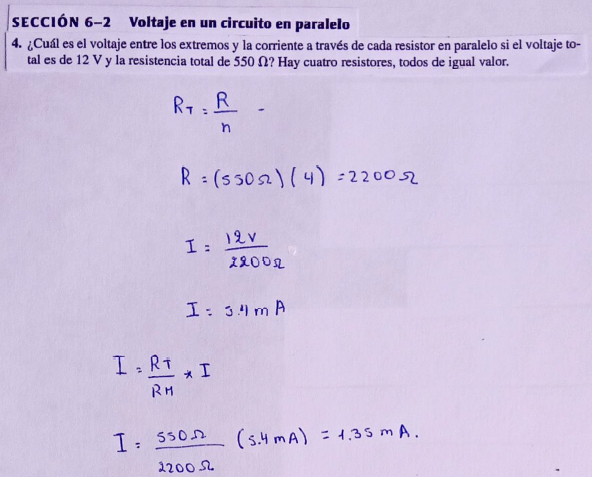 SECCIÓN 6–2 Voltaje en un circuito en paralelo
4. ¿Cuál es el voltaje entre los extremos y la corriente a través de cada resistor en paralelo si el voltaje to-
tal es de 12 V y la resistencia total de 550 Ω? Hay cuatro resistores, todos de igual valor.
RT = R/n -
R = (550Ω)(4) = 2200Ω
I = 12V/2200Ω
I = 5.4 mA
I = RT/RM * I
I = 550Ω/2200Ω (5.4mA) = 1.35 mA.